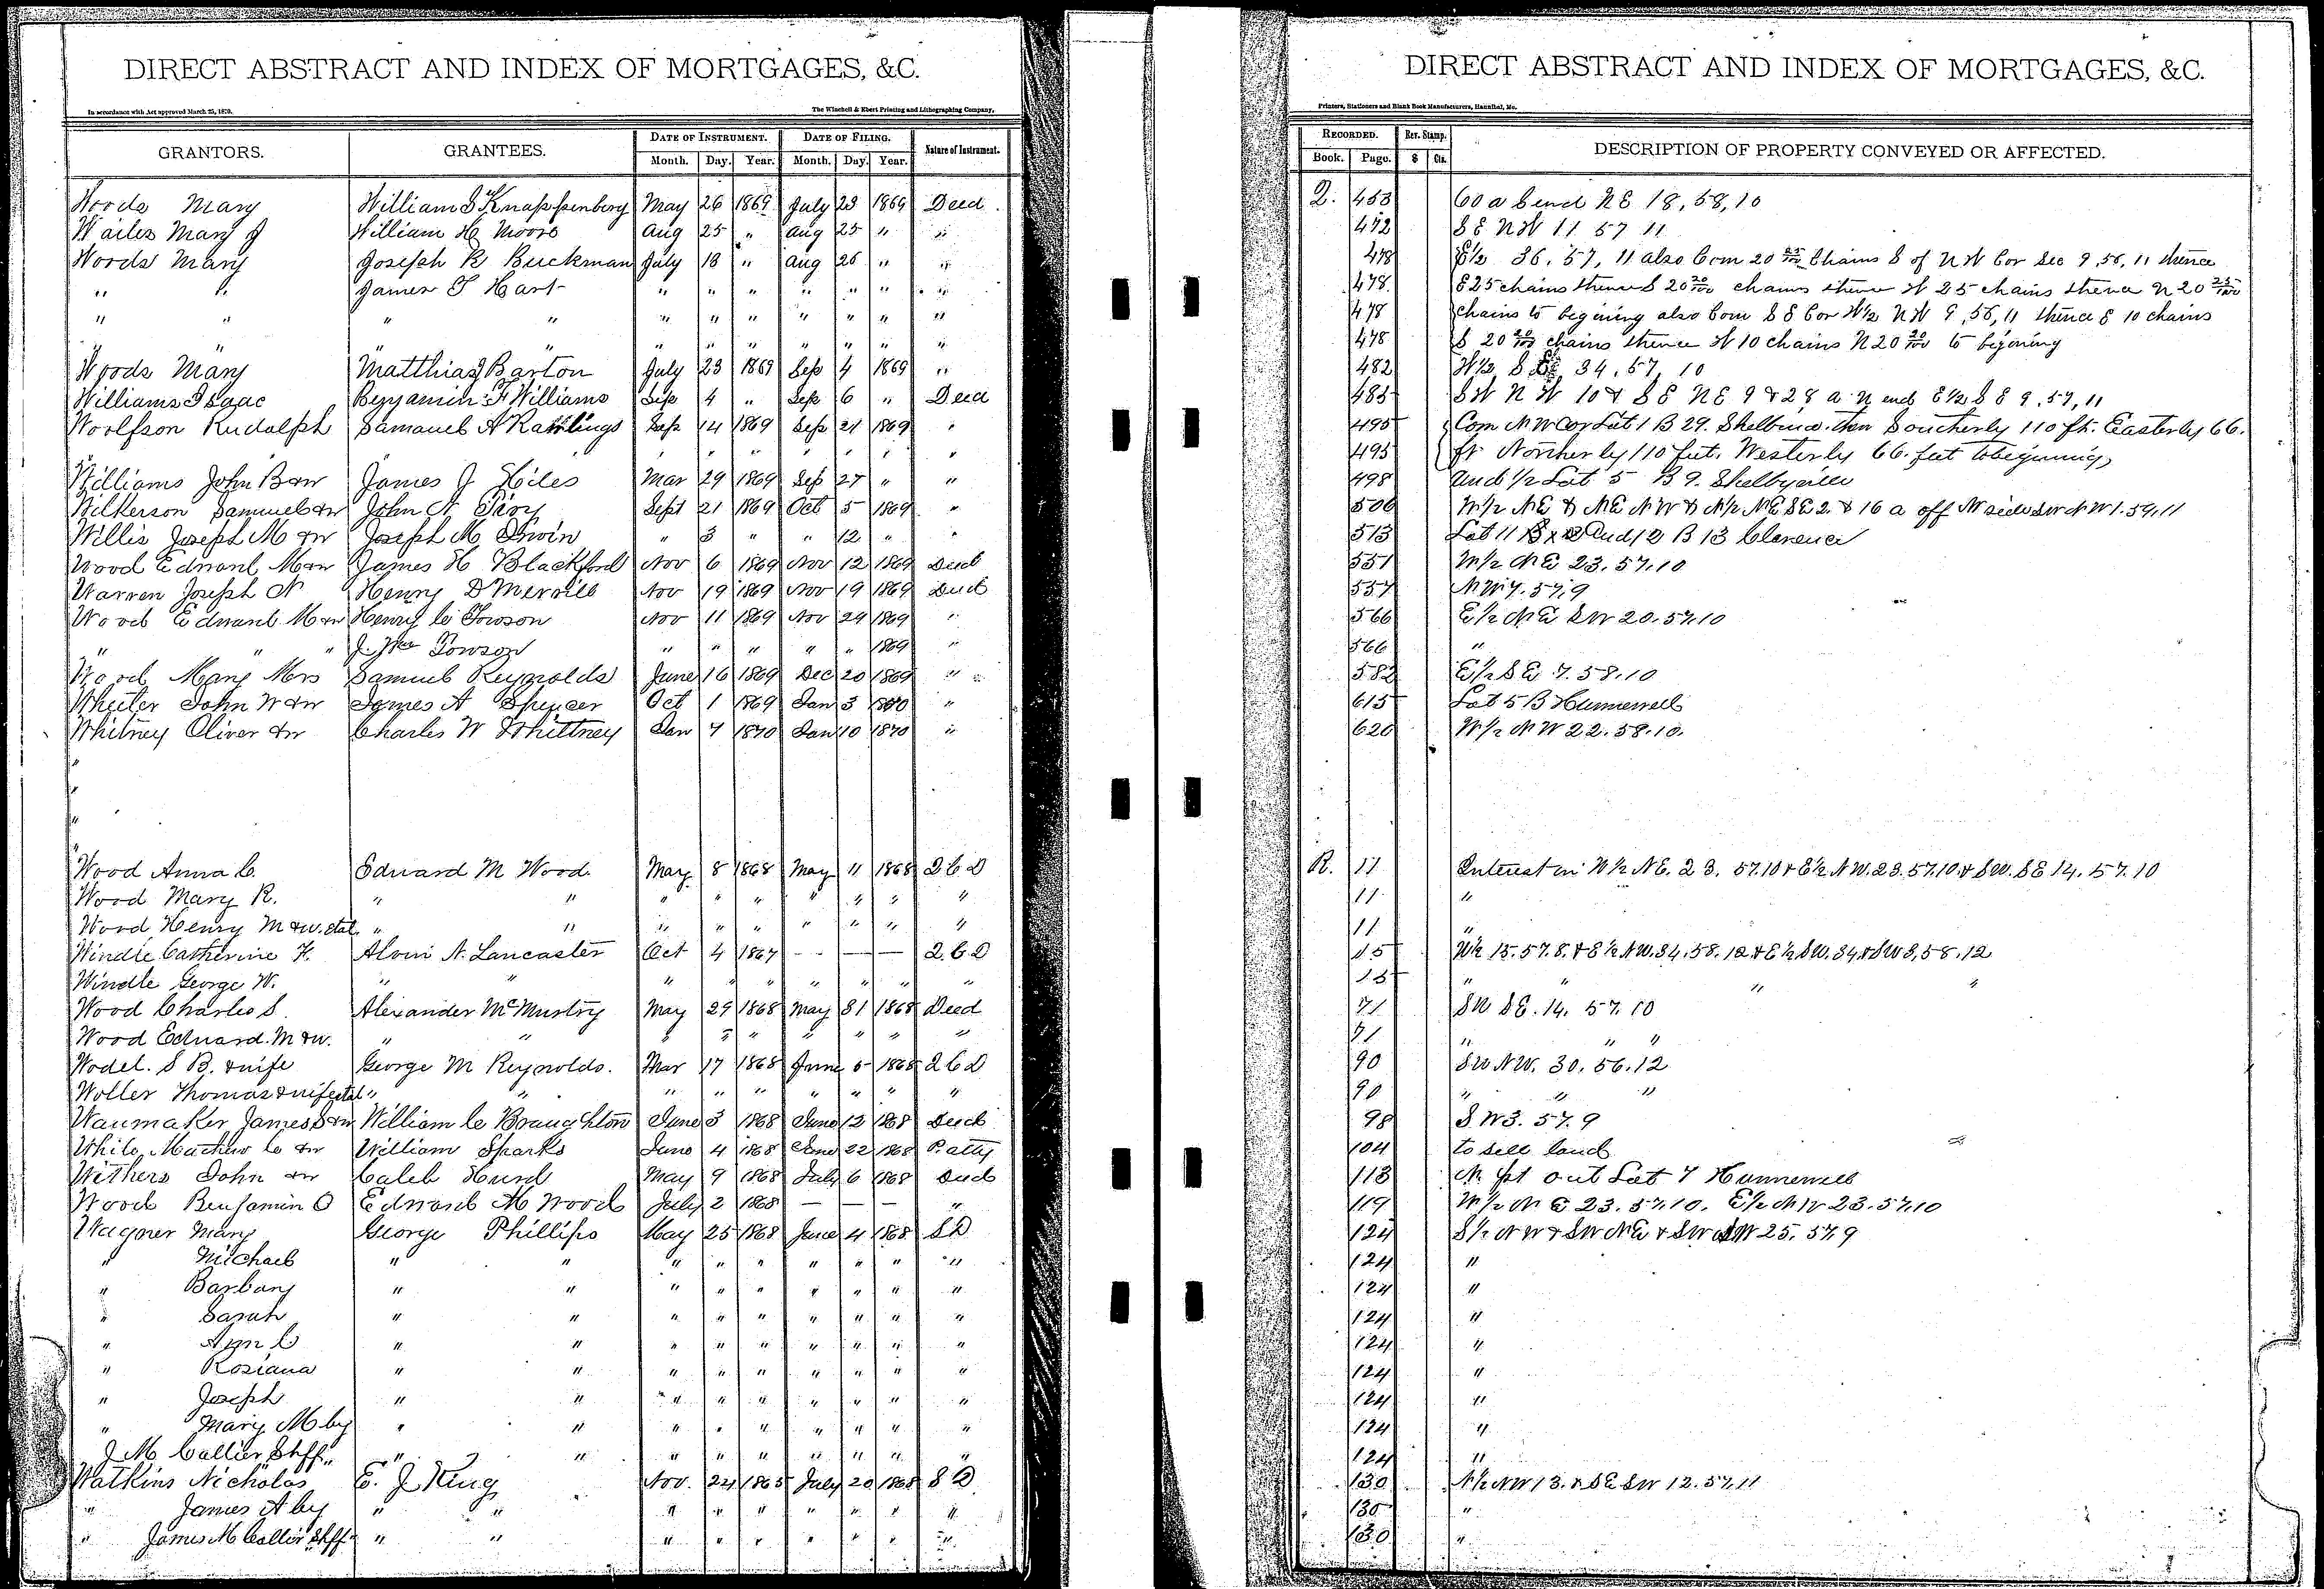 DIRECT ABSTRACT AND INDEX OF MORTGAGES, &C.
In accordance with Act approved March 25, 1870.
The Winchell & Ebert Printing and Lithographing Company,
GRANTORS. GRANTEES. DATE OF INSTRUMENT. DATE OF FILING. Nature of Instrument.
Month. Day. Year. Month. Day. Year.
Woods Mary William S Knappenberg May 26 1869 July 23 1869 Deed
Wailes Mary J William H Moore Aug 25 " Aug 25 " "
Woods Mary Joseph R Buckman July 18 " Aug 26 " "
" " James T Hart " " " " " " "
" " " " " " " " " " "
" " " " " " " " " " "
Woods Mary Matthias J Barton July 23 1869 Sep 4 1869 "
Williams Isaac Benjamin F Williams Sep 4 " Sep 6 " Deed
Woolfson Rudolph Samauel A Rawlings Sep 14 1869 Sep 21 1869 "
" " " " " " "
Williams John B &w James J Hiles Mar 29 1869 Sep 27 " "
Wilkerson Samuel &w John N Sept 21 1869 Oct 5 1869 "
Willis Joseph M &w Joseph M Irwin " 3 " " 12 " "
Wood Edward M &w James H Blackford Nov 6 1869 Nov 12 1869 Deed
Warren Joseph N Henry D Merrill Nov 19 1869 Nov 19 1869 Deed
Wood Edward M &w Henry C Towson Nov 11 1869 Nov 24 1869 "
" " " J. Towson " " " " " 1869 "
Wood Mary Mrs Samuel Reynolds June 16 1869 Dec 20 1869 "
Wheeler John W &w James A Spencer Oct 1 1869 Jan 3 1870 "
Whitney Oliver &w Charles W Whittney Jan 7 1870 Jan 10 1870 "
Wood Anna C. Edward M Wood. May 8 1868 May 11 1868 2 C D
Wood Mary R. " " " " " " " " "
Wood Henry M &w. etal. " " " " " " " " "
Windle Catherine H. Alvin N. Lancaster Oct 4 1867 - - — — 2. C D
Windle George W. " " " " " " " " "
Wood Charles S. Alexander McMurtry May 29 1868 May 31 1868 Deed
Wood Edward. M &w. " " " " " " " " "
Wodel. S B. & wife George M Reynolds. Mar 17 1868 June 5 1868 2 C D
Woller Thomas & wife etal " " " " " " " " "
Waumaker James S &w William C Braughton June 3 1868 June 12 1868 Deed
White Mathew C &w William Sparks June 4 1868 June 22 1868 P. atty
Withers John &w Caleb Hurd May 9 1868 July 6 1868 Deed
Wood Benjamin O Edward M Wood July 2 1868 — — — "
Wagner Mary George Phillips May 25 1868 June 4 1868 S D
" Michael " " " " " " " " "
" Barbary " " " " " " " " "
" Sarah " " " " " " " " "
" Ann C " " " " " " " " "
" Rosiana " " " " " " " " "
" Joseph " " " " " " " " "
" Mary M by " " " " " " " " "
J M Collier Shff " " " " " " " " "
Watkins Nicholas E. J King Nov. 24 1865 July 20 1868 S D
" James A by " " " " " " " " "
" James M Collier Shff " " " " " " " " "
DIRECT ABSTRACT AND INDEX OF MORTGAGES, &C.
Printers, Stationers and Blank Book Manufacturers, Hannibal, Mo.
RECORDED. Rev. Stamp. DESCRIPTION OF PROPERTY CONVEYED OR AFFECTED.
Book. Page. $ Cts.
Q. 453 60 a S end N E 18, 58, 10
472 S E N W 11 57 11
478 E½ 36, 57, 11 also Com 20 25/100 Chains S of N W Cor Sec 9, 56, 11 thence
478. E 25 chains thence S 20 20/100 chains thence W 25 chains thence N 20 25/100
478 chains to begining also Com S E Cor W½ N W 9, 56, 11 thence E 10 chains
478 S 20 20/100 chains thence W 10 chains N 20 20/100 to begining
482 W½ S E 34, 57, 10
485 S W N W 10 & S E N E 9 & 28 a N end E½ S E 9, 57, 11
495 Com N W Cor Lot 1 B 29. Shelbina. then Southerly 110 ft. Easterly 66.
495 ft Northerly 110 feet. Westerly 66. feet to begining
498 und 1/2 Lot 5 B 9. Shelbyville
506 W/2 N E & N E N W & N/2 N E S E 2. & 16 a off N side S W N W 1. 57. 11
513 Lot 11 and 12 B 13 Clarence
551 W/2 N E 23. 57. 10
557 N W 7. 57. 9
566 E/2 N E S W 20. 57. 10
566 "
582 E/2 S E 7. 58. 10
615 Lot 5 B Hunnewell
620 W/2 N W 22. 58. 10.
R. 11 Interest in W½ N E. 23. 57. 10 & E½ N W. 23. 57. 10. & S W. S E 14. 57. 10
11 "
11 "
15 W½ 15. 57. 8. & E½ N W. 34. 58. 12. & E½ S W. 34 & S W 3, 58. 12
15 " " " "
71 S W S E. 14. 57. 10
71 " " "
90 S W N W. 30. 56. 12
90 " " "
98 S. W 3. 57. 9
104 to sell land
113 N. pt out Lot 7 Hunnewell
119 W/2 N E 23. 57. 10. E/2 N W 23. 57. 10
124 S/2 N W & S W N E & S W N W 25. 57. 9
124 "
124 "
124 "
124 "
124 "
124 "
124 "
124 "
130 N/2 N W 13. & S E S W 12. 57. 11
130 "
130 "